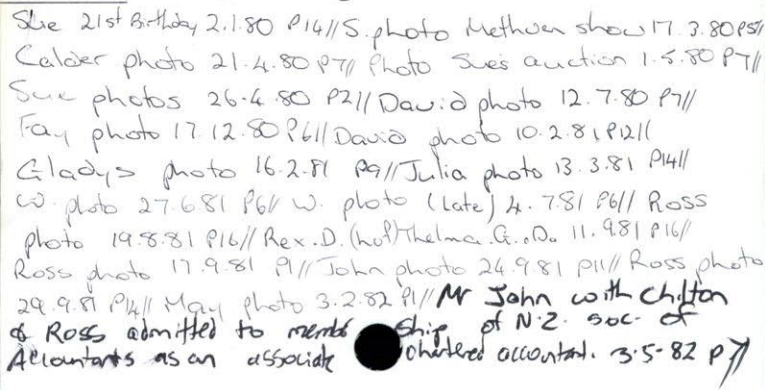 Sue 21st Birthday 2.1.80 P14// S. photo Methven show 17.3.80 P5//
Calder photo 21.4.80 P7// Photo Sue's auction 1.5.80 P7//
Sue photos 26.4.80 P2// David photo 12.7.80 P7//
Fay photo 17.12.80 P6// David photo 10.2.81 P12//
Gladys photo 16.2.81 P9// Julia photo 13.3.81 P14//
W. photo 27.6.81 P6// W. photo (late) 4.7.81 P6// Ross
photo 19.8.81 P16// Rex. D. Thelma. G. D. 11.9.81 P16//
Ross photo 17.9.81 P1// John photo 24.9.81 P11// Ross photo
29.9.81 P14// May photo 3.2.82 P1// Mr John with Chilton
& Ross admitted to member ship of N.Z. soc. of
Accountants as an associate chartered accountant. 3.5-82 P7//